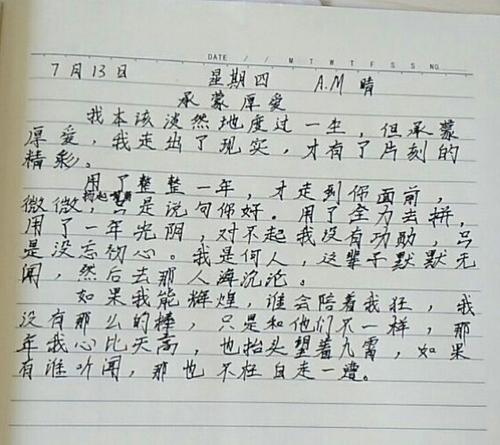 DATE / / M T W T F S S NO.
7月13日 星期四 A.M 晴
承蒙厚爱
我本该淡然地度过一生，但承蒙
厚爱，我走出了现实，才有了片刻的
精彩。
用了整整一年，才走到你面前，
微微，只是说句你好。用了全力去拼，
用了一年光阴，对不起我没有功勋，只
是没忘初心。我是何人，这辈子默默无
闻，然后去那人海沉沦。
如果我能辉煌，谁会陪着我狂，我
没有那么的棒，只是和他们不一样，那
年我心比天高，也抬头望着九霄，如果
有谁听闻，那也不枉自走一遭。